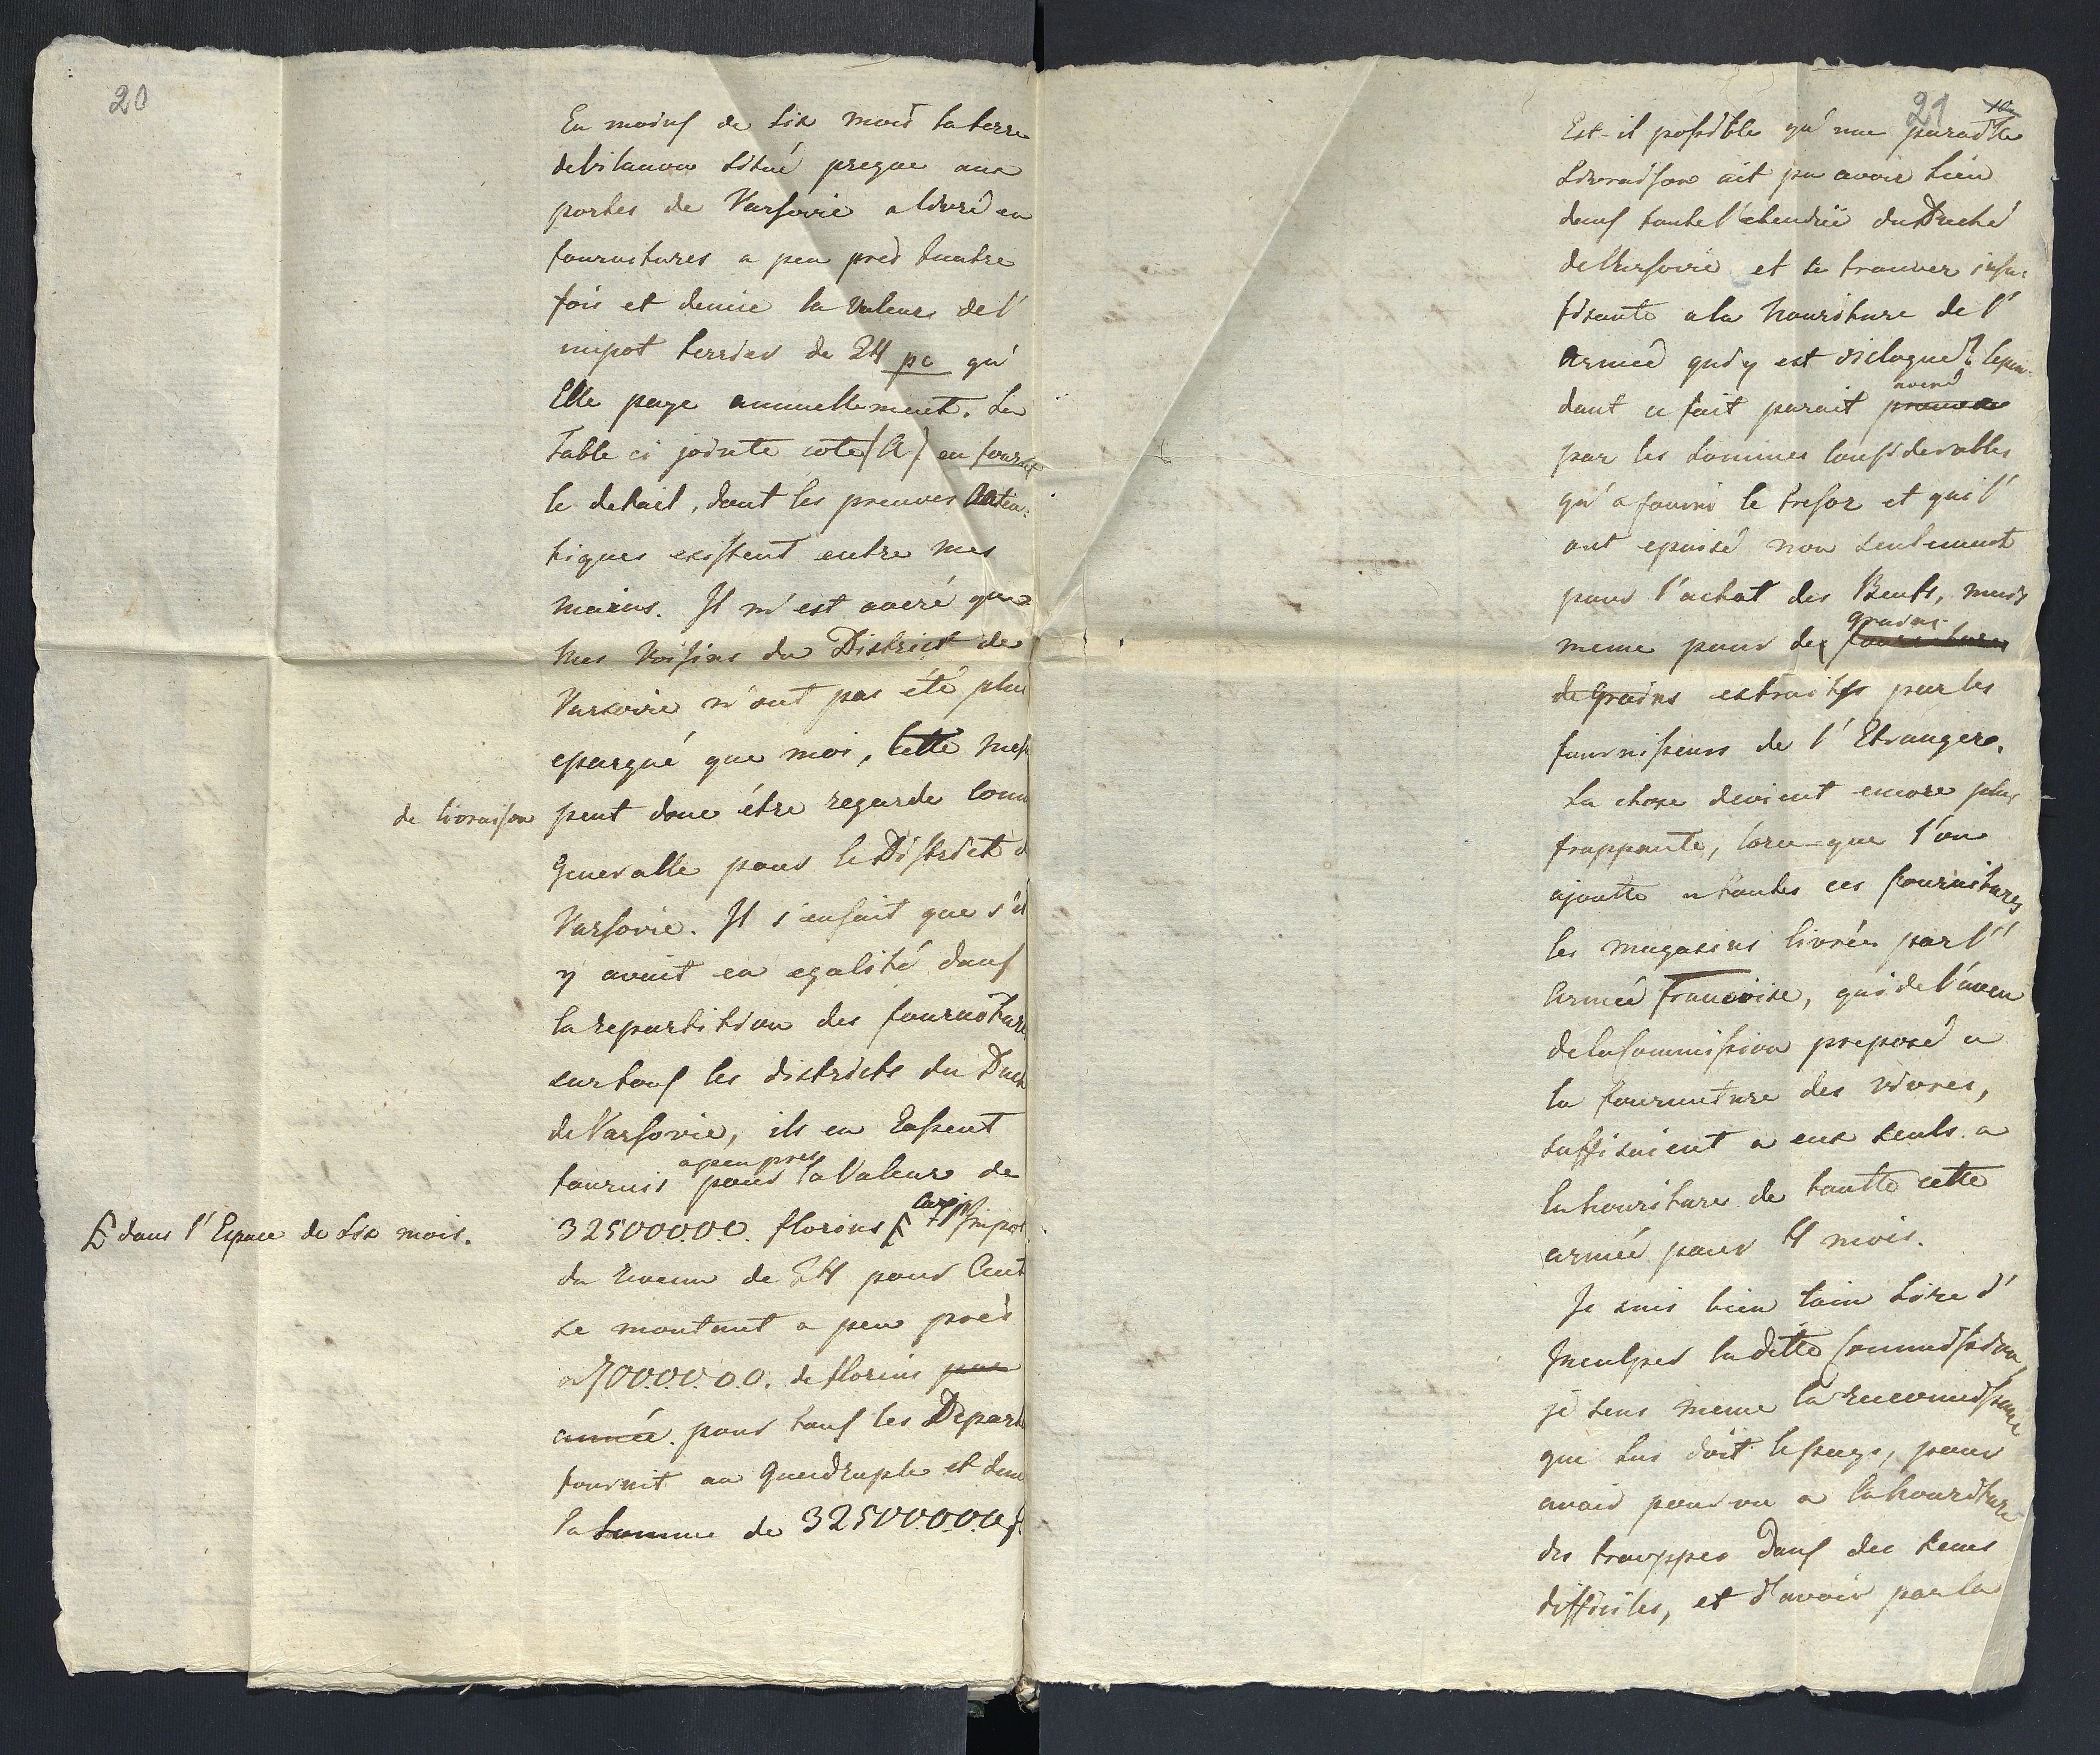 20
En moins de six mois la terre
de Vilanow situé presque aux
portes de Varsovie a livré en
fournitures a peu pres quatre
fois et demie la valeur de l'
impot terrier de 24 pc qu'
Elle paye annuellement. La
Table ci jointe coté (A) en fournit
le detail, dont les preuves auten=
tiques existent entre mes
mains. Il m'est averé que
mes voisins du District de
Varsovie n'ont pas été plus
epargné que moi, Cette
de livraison peut donc étre regardé
Generalle pour le District d
Varsovie. Il s'ensuit que s'il
y avait eu egalité dans
la repartition des fourniture
sur tous les districts du Duch
de Varsovie, ils en Eussent
fournis a peu pres pour la Valeur de
32500000. florins car l'Impot
dans l'Espace de six mois.
du revenu de 24 pour Cent
se montant a peu près
a 7000000. de florins par
année. pour tous les Depart
fournit au Quadruple et dem
la Somme de 32500000 f.
21
Est-il possible qu'une pareille
Livraison ait pu avoir lieu
dans toute l'etendue du Duché
de Varsovie et se trouver insu=
fisante a la Nouriture de l'
Armée qui y est disloquée? Cepen=
dant ce fait parait prouvée averé
par les sommes considerables
qu'a fourni le tresor et qui l'
ont epuisé non seulement
pour l'achat des Beufs, mais
meme pour des fournitures grains
de Grains extraits par les
fournisseurs de l'Etranger.
La chose devient encore plus
frappante, lors-que l'on
ajoutte a toutes ces fournitures
les magasins livrés par l'
Armée francoise, qui de l'aveu
de la Commission preposé a
la fourniture des vivres,
suffisoient a eux seuls a
la nouriture de toutte cette
armée pour 4 mois.
Je suis bien loin Sire d'
Inculper la ditte Commission,
je sens meme la reconnoissance
que lui doit le pays, pour
avoir pourvu a la nouriture
des trouppes dans des tems
difficiles, et d'avoir par la